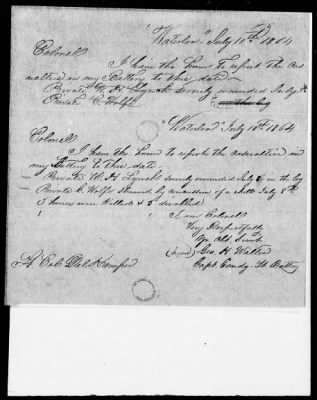 "Waterloo" July 10th 1864
Colonel
I have the honor to report the Cas
ualties in my Battery to this date
Private W. H. Lynch severely wounded July
Private C. Wolfe
"Waterloo" July 10th 1864
Colonel
I have the honor to report the casualties in
my Battery to this date
Private W. H. Lynch severely wounded July in the leg
Private C. Wolfe Stunned by concussion of a shell July 8th
3 horses were killed & 3 disabled
I am Colonel
Very Respectfully
Yr Obt Servt
(Signed) Geo. H. Walter
Capt Comdg Lt Battery
Lt Col Del Kemper